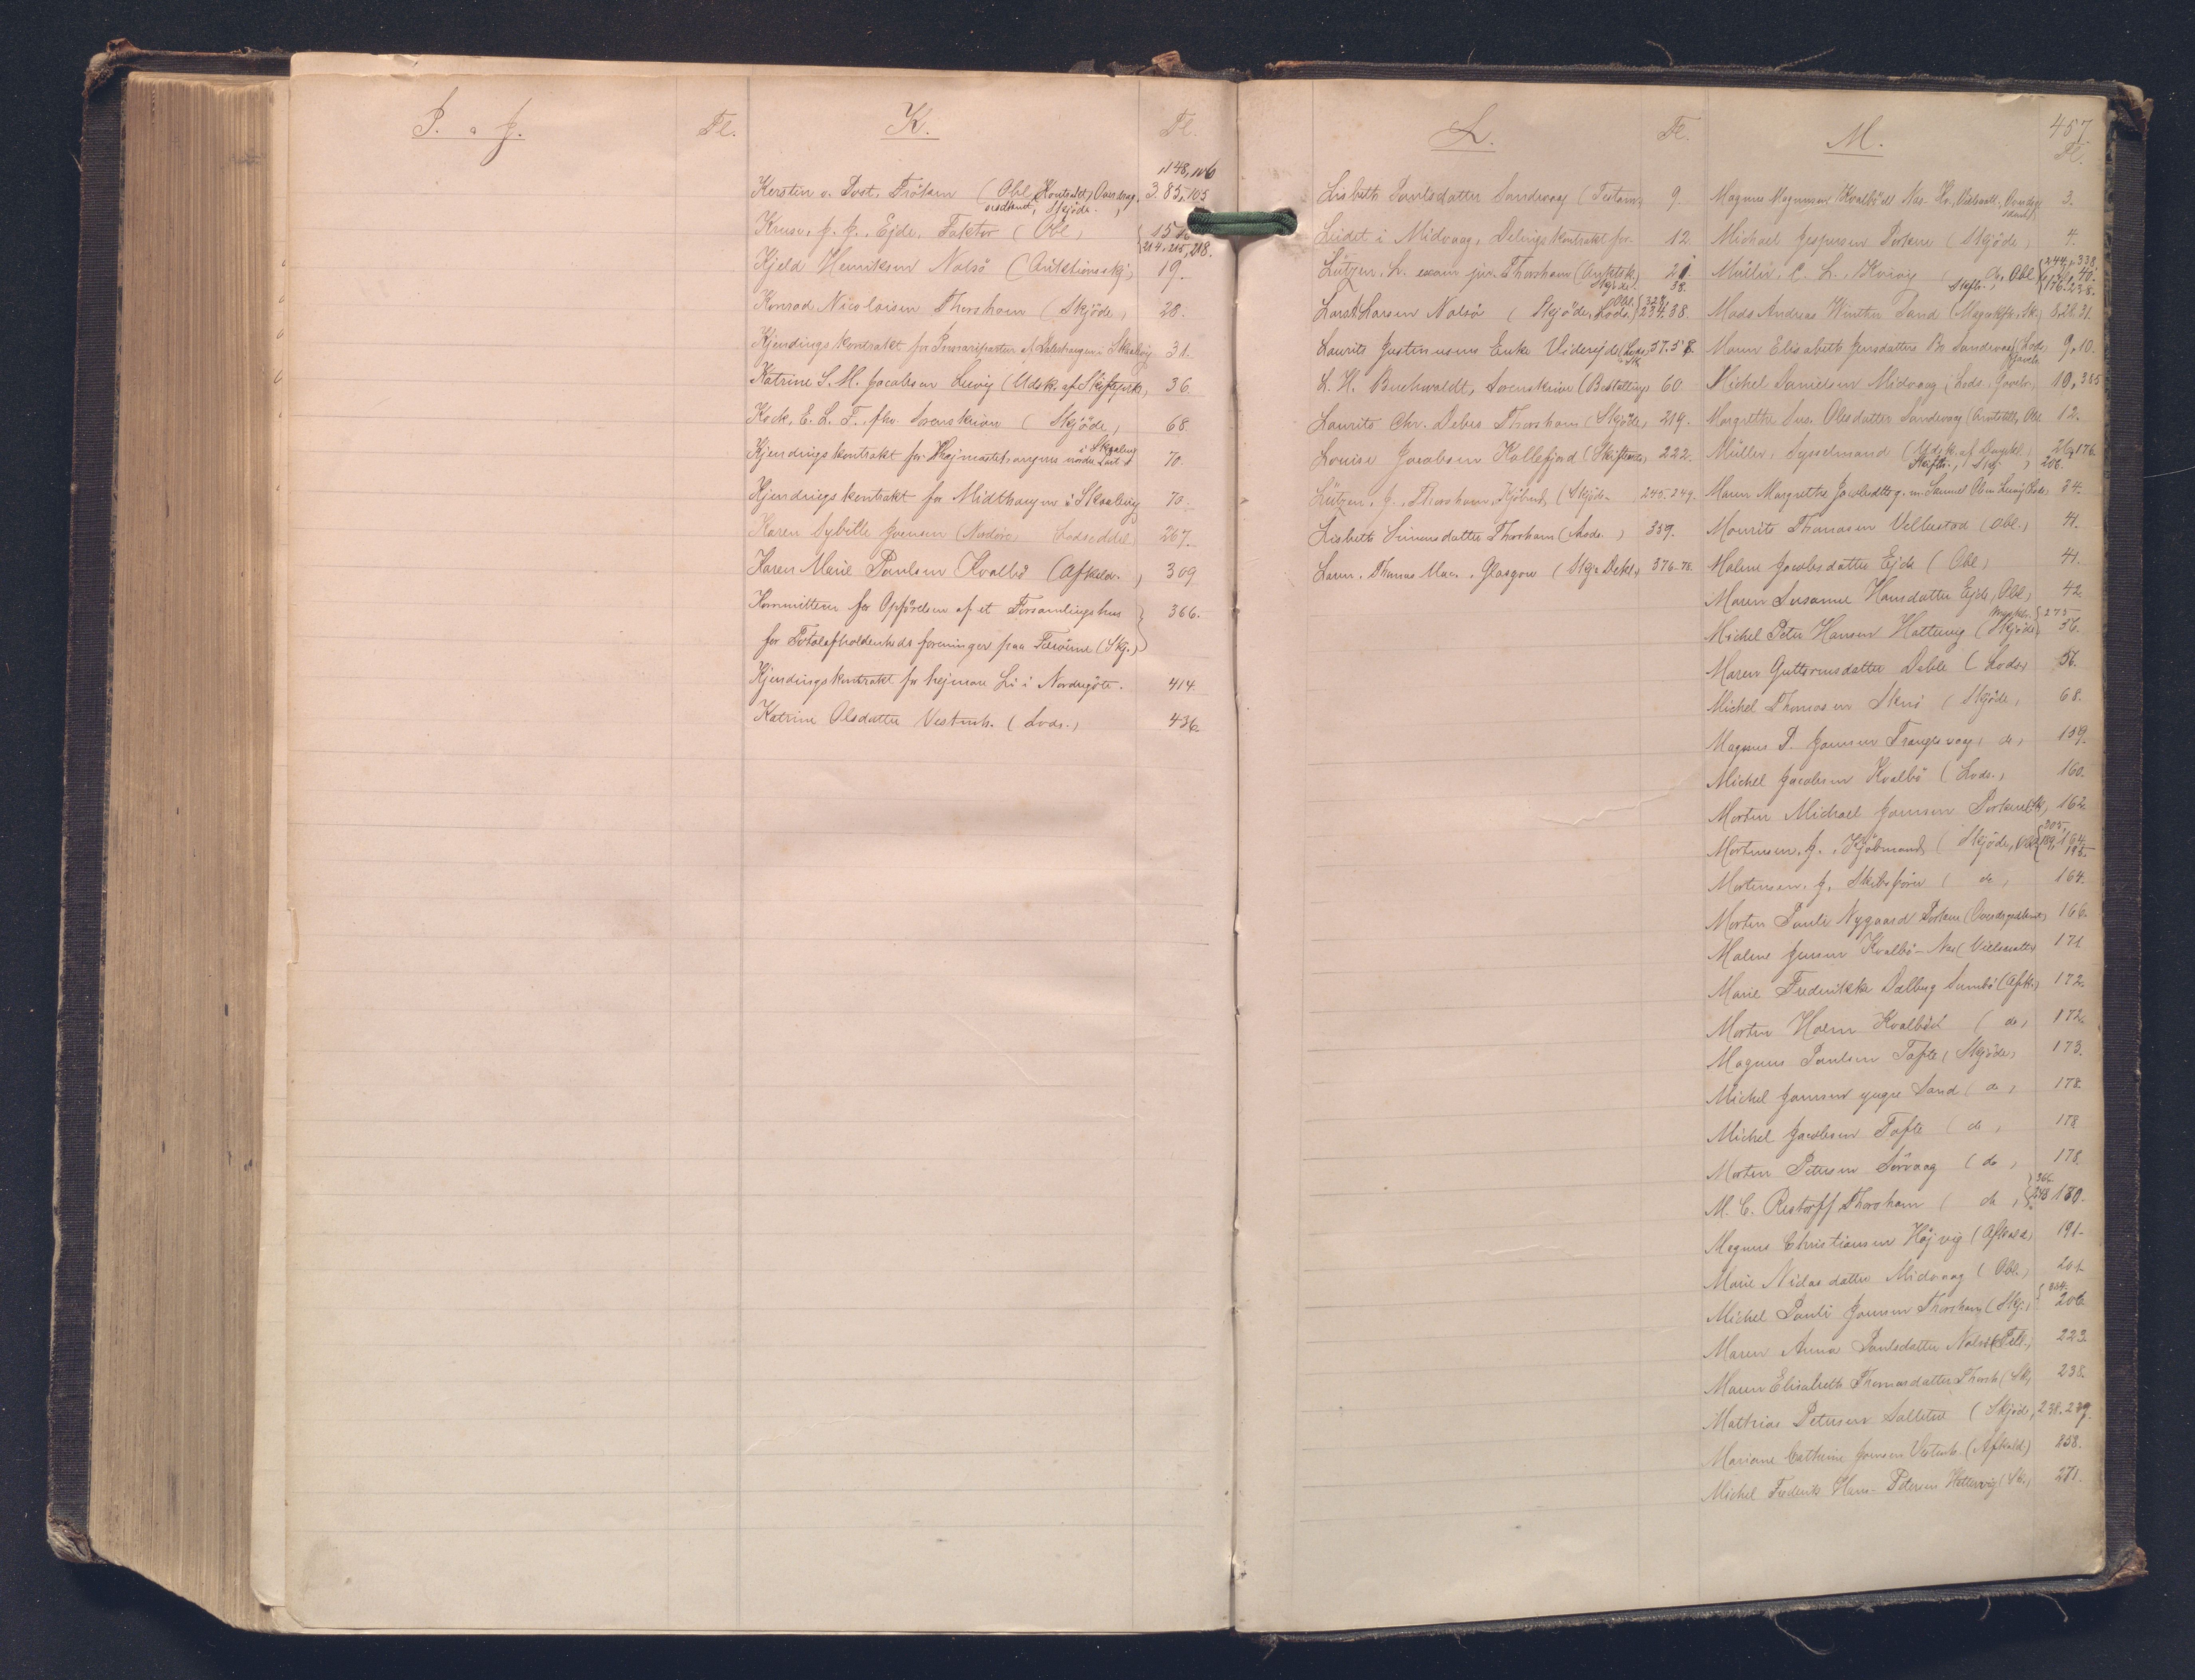 I. o J.
Fl.
K.
Fl.
148, 106
Kersten o. Post, Fröken (Obl, Kontrakt, Overdrag. 3.85, 105
Skjöde.
Kruse, J. J., Ejde, Faktor (Obl, 151
214, 215, 218.
Kjeld Henriksen Nolsö (Auktionsskj, 19.
Konrad Nicolaisen Thorshavn (Skjöde, 28.
Kjendingskontrakt for i Skaalevig 31.
Katrine S. M. Jacobsen Lervig (Udsk. af Skifteprk, 36.
Kock, E. L. T. fhv. Sorenskriver (Skjöde, 68
i Skaalevig
Kjendingskontrakt for 70.
Kjendingskontrakt for Midthaugen i Skaalevig 70.
Karen Sybille Joensen (Nordöre Lodseddel 267.
Karen Marie Poulsen Kvalbö (Afkald., 309
Kommitteen for Opförelsen af et Forsamlingshus
366.
for Totalafholdenheds foreninger paa Færöerne (Skj.)
Kjendingskontrakt for hejmare Li i Nordregöte. 414
Katrine Olsdatter Vestmh. (Lods., 436.
L.
Fl.
Lisbeth Poulsdatter Sandevaag (Testam, 9.
Leidet i Midvaag, Delingskontrakt for. 12
Lützen, L. exam. jur. Thorshavn (Auktsk, 21
Skjöde. 38.
Obl. 328
Lars Larsen Nolsö (Skjöde, Lods. 234. 38
Laurits Justinusens Enke Viderejde (Lods, 57. 58.
L. H. Buchwaldt, Sorenskriver (Bestalling, 60
Laurits Chr. Debes Thorshavn (Skjöde, 219.
Louise Jacobsen Kollefjord (Skiftends, 222.
Lützen, J., Thorshavn, Kjöbmd, (Skjöde 245. 249.
Lisbeth Simonsdatter Thorshavn (Lods., 359.
Laren, Thomas Mac., Glasgow (Skj. Dekl, 376. 78.
457
M.
Fl.
Magnus Magnussen Kvalbö Nes 3.
Michael Jespersen Porkere (Skjöde, 4.
244, 338,
Müller, C. L., Kvivig ( do, Obl. 40.
Skifte., 176. 238.
Mads Andreas Winther Sand (Mageskfte, Sk, 8, 21. 31.
Maren Elisabeth Jensdatters Bo Sandevaag (Lods. 9, 10.
Michel Danielsen Midvaag (Lods., Gavebr, 10, 385
Margrethe Sus. Olesdatter Sandevaag ( Obl. 12.
Müller, Sysselmand (Udsk. af 26, 176.
Skifte., Skj. , 206.
Maren Margrethe Jacobsdttr g. m. Samuel Olsen Lervig (Lods, 34.
Mourits Thomasen Vellestad (Obl., 41.
Malene Jacobsdatter Ejde (Obl, 41.
Maren Susanne Hansdatter Ejde, Obl, 42
275
Michel Peter Hansen Hattervig (Skjöde, 56.
Maren Guttormsdatter Deble (Lods, 56.
Michel Thomasen Skuö (Skjöde, 68.
Magnus P. Joensen Trangisvaag, do, 159.
Michel Jacobsen Kvalbö (Lods., 160.
Morten Michael Joensen Porkere (Sk, 162
205,
Mortensen, J., Kjöbmand (Skjöde, Obl. 189, 164
195.
Mortensen, J., Skibsförer ( do, 164.
Morten Pauli Nygaard Porkere (Overdr 166.
Malene Jensen Kvalbö-Nes (Vielsesatt, 171
Marie Frederikke Dalberg Sumbö (Afk., 172.
Morten Holm Kvalböd ( do, 172.
Magnus Poulsen Tofte (Skjöde, 173.
Michel Joensen yngre Sand ( do, 178.
Michel Jacobsen Tofte ( do, 178
Morten Petersen Sörvaag ( do, 178.
366.
M. C. Restorff Thorshavn ( do, 248 180.
Magnus Christiansen Höjvig (Afkald, 191.
Marie Niclasdatter Midvaag (Obl., 201.
334.
Michel Pauli Joensen Thorshavn (Skj., 206
Maren Anna Poulsdatter Nolsö 223.
Maren Elisabeth Thomasdatter Thorsh (Sk, 238.
Mathias Petersen Saltnes (Skjöde, 238. 239.
Mariane Cathrine Joensen Vestmh. (Afkald.) 258.
Michel Frederik Hans-Petersen Hattervig (Sk., 271.